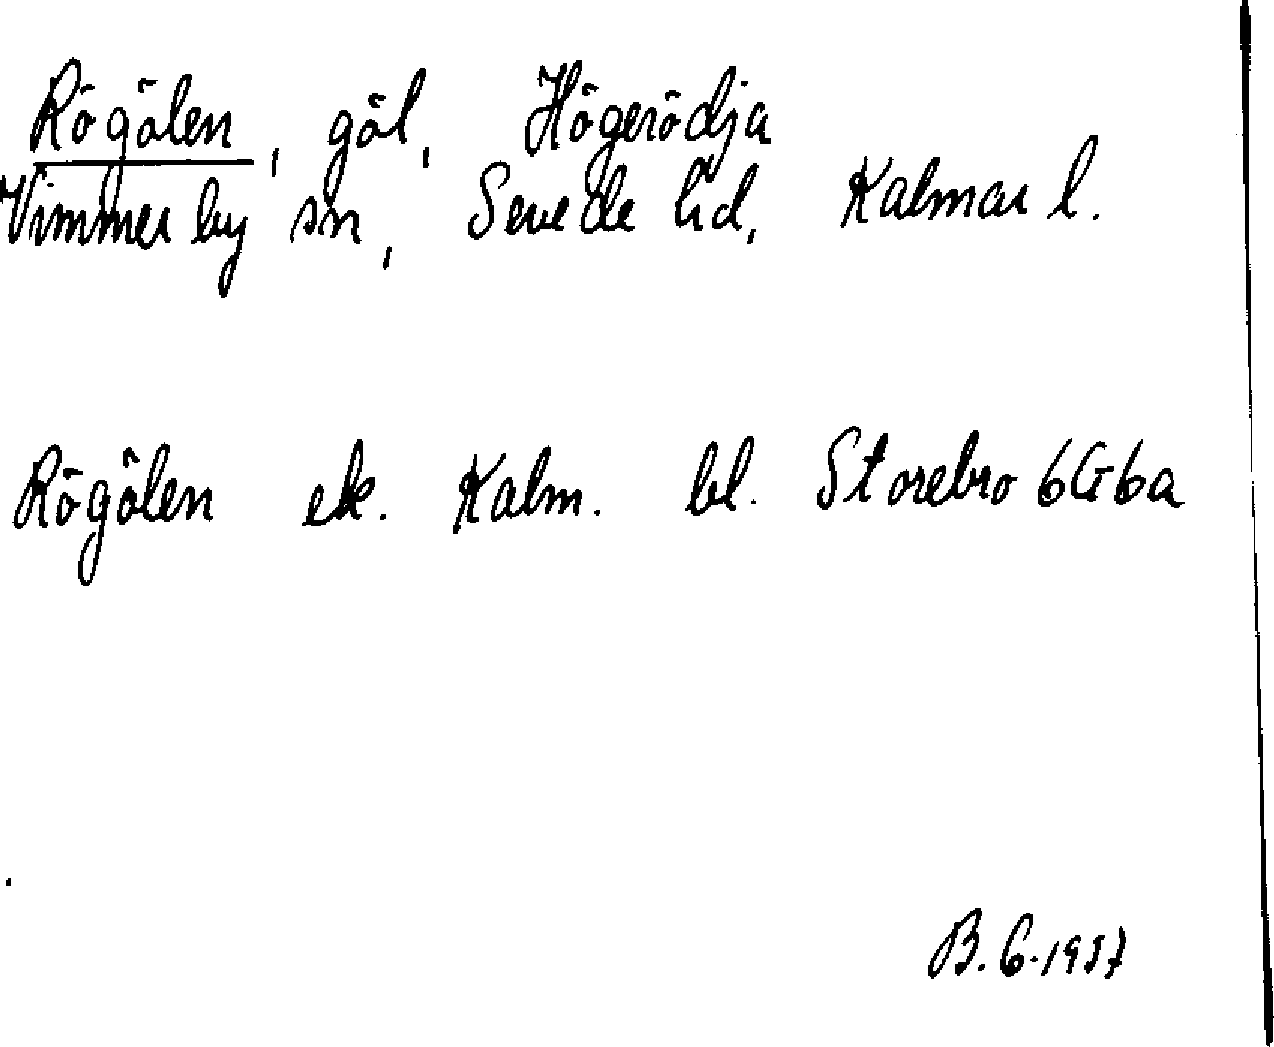 Rögölen, göl, Högerödja
Vimmerby sn, Sevede hd, Kalmar l.
Rögölen ek. Kalm. bl. Storebro 6G6a
B.G. 1957